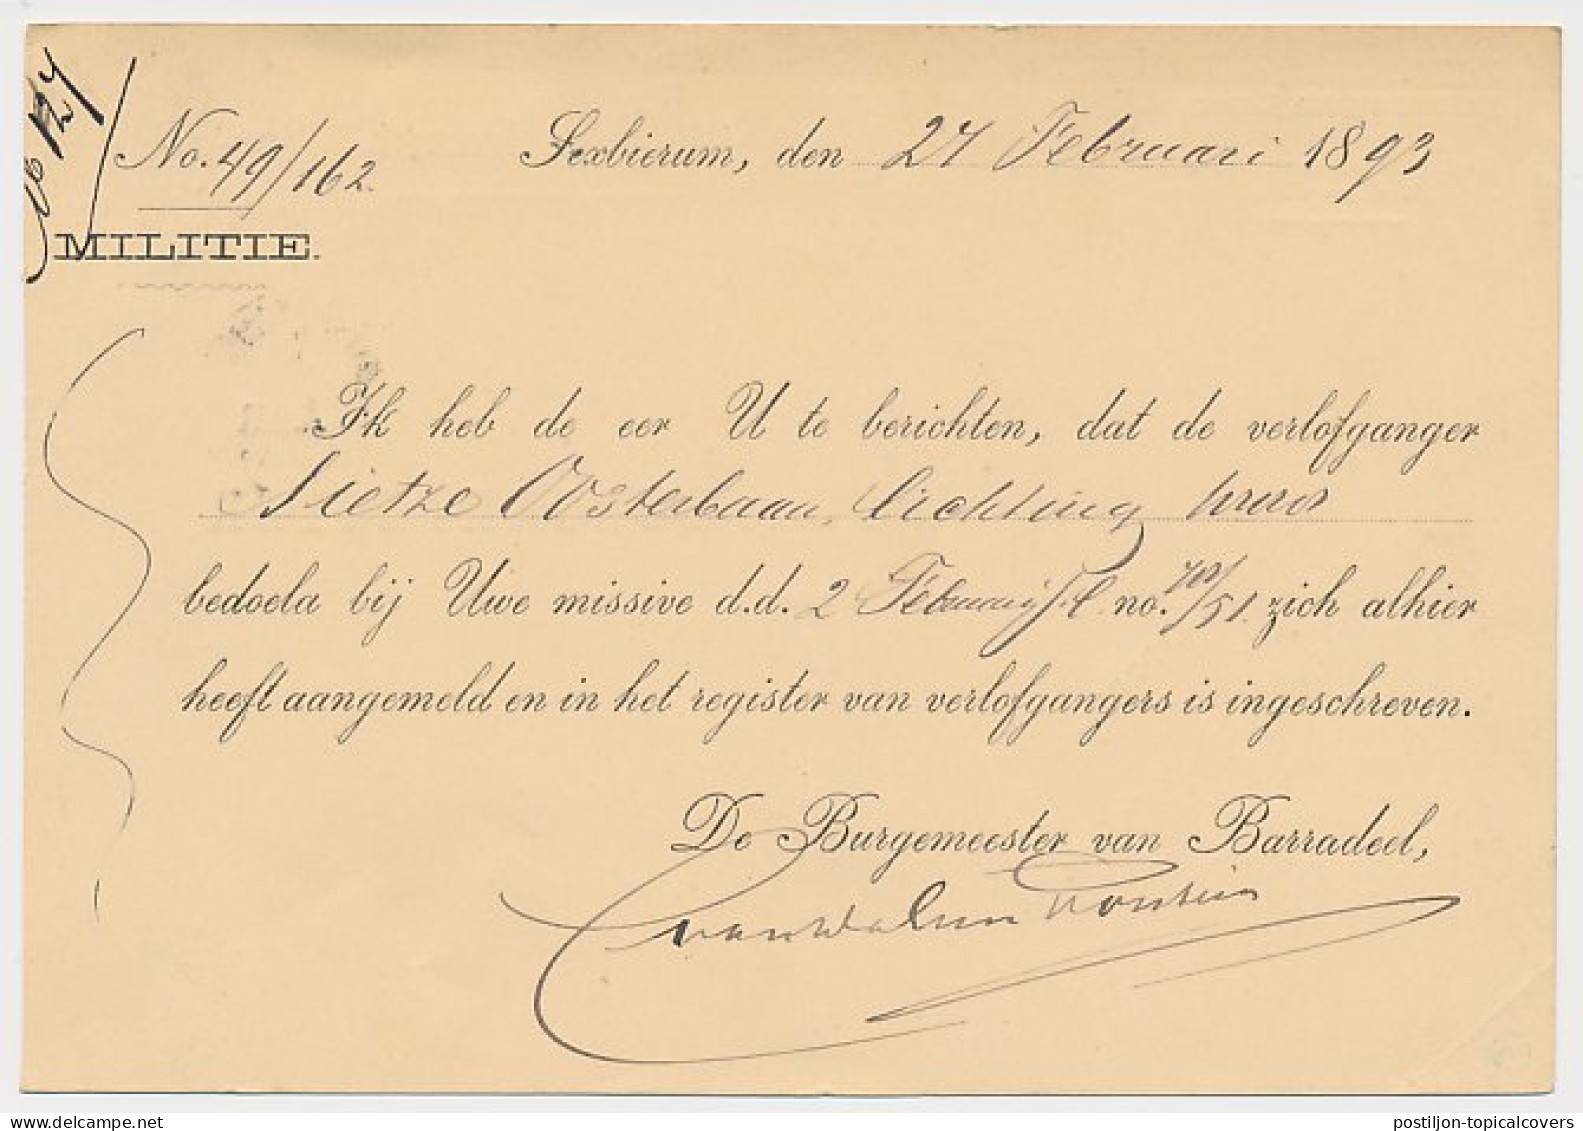 No. 49/162.
Sexbierum, den 27 Februari 1893
MILITIE.
Ik heb de eer U te berichten, dat de verlofganger
Sietze Oosterbaan, lichting
bedoeld bij Uwe missive d.d. 2 Februarij j.l. no. /51. zich alhier
heeft aangemeld en in het register van verlofgangers is ingeschreven.
De Burgemeester van Barradeel,
postiljon-topicalcovers